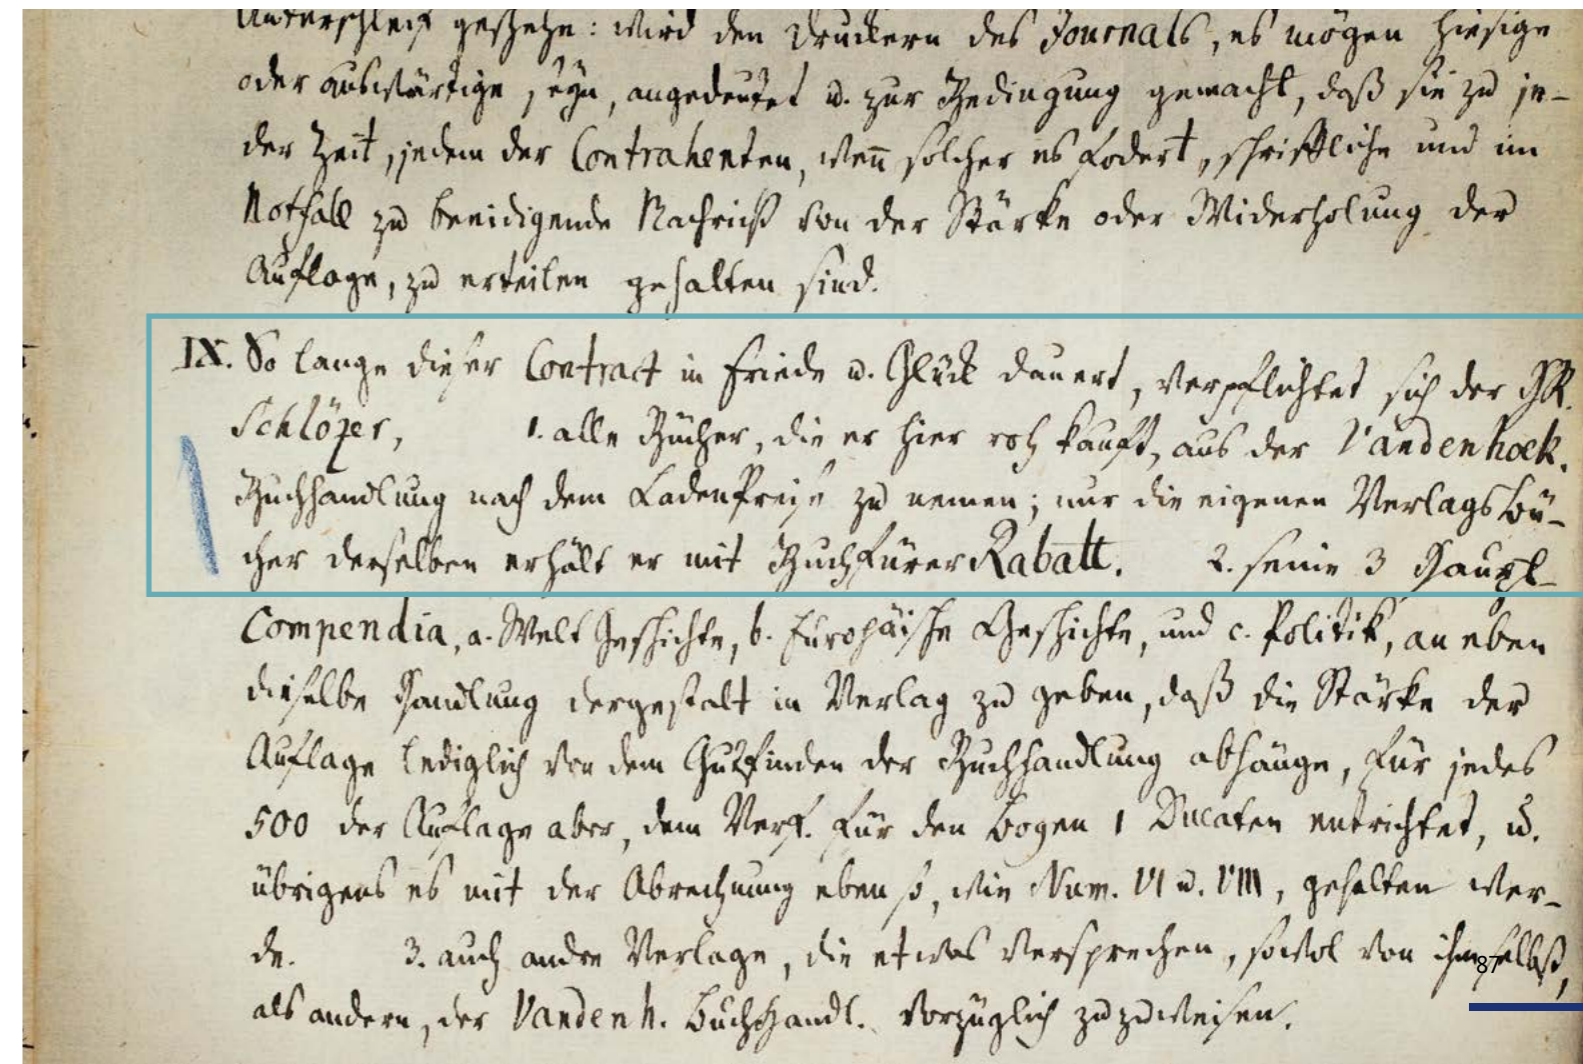 Unterschleif geschehe: wird den Druckern des Journals, es mögen hiesige
oder auswärtige seyn, angedeutet u. zur Bedingung gemacht, daß sie zu je-
der Zeit, jedem der Contrahenten, weñ solcher es fodert, schriftliche und im
Notfall zu beeidigende Nachricht von der Stärke oder Widerholung der
Auflage, zu erteilen gehalten sind.
IX. So lange dieser Contract in Friede u. Glück dauert, verpflichtet sich der HR.
Schlözer, 1. alle Bücher, die er hier roh kauft, aus der Vandenhoek.
Buchhandlung nach dem LadenPreise zu nemen; nur die eigenen Verlagsbü-
cher derselben erhält er mit BuchfürerRabatt. 2. seine 3 Haupt-
Compendia, a. Welt Geschichte, b. Europäische Geschichte, und c. Politik, an eben
dieselbe Handlung dergestalt in Verlag zu geben, daß die Stärke der
Auflage lediglich von dem Gutfinden der Buchhandlung abhänge, für jedes
500 der Auflage aber, dem Verf. für den Bogen 1 Ducaten entrichtet, u.
übrigens es mit der Abrechnung eben so, wie Num. VI u. VIII, gehalten wer-
de. 3. auch andre Verlage, die etwas versprechen, sowol von ihm selbst,
87
als andern, der Vandenh. Buchhandl. vorzüglich zuzuweisen.